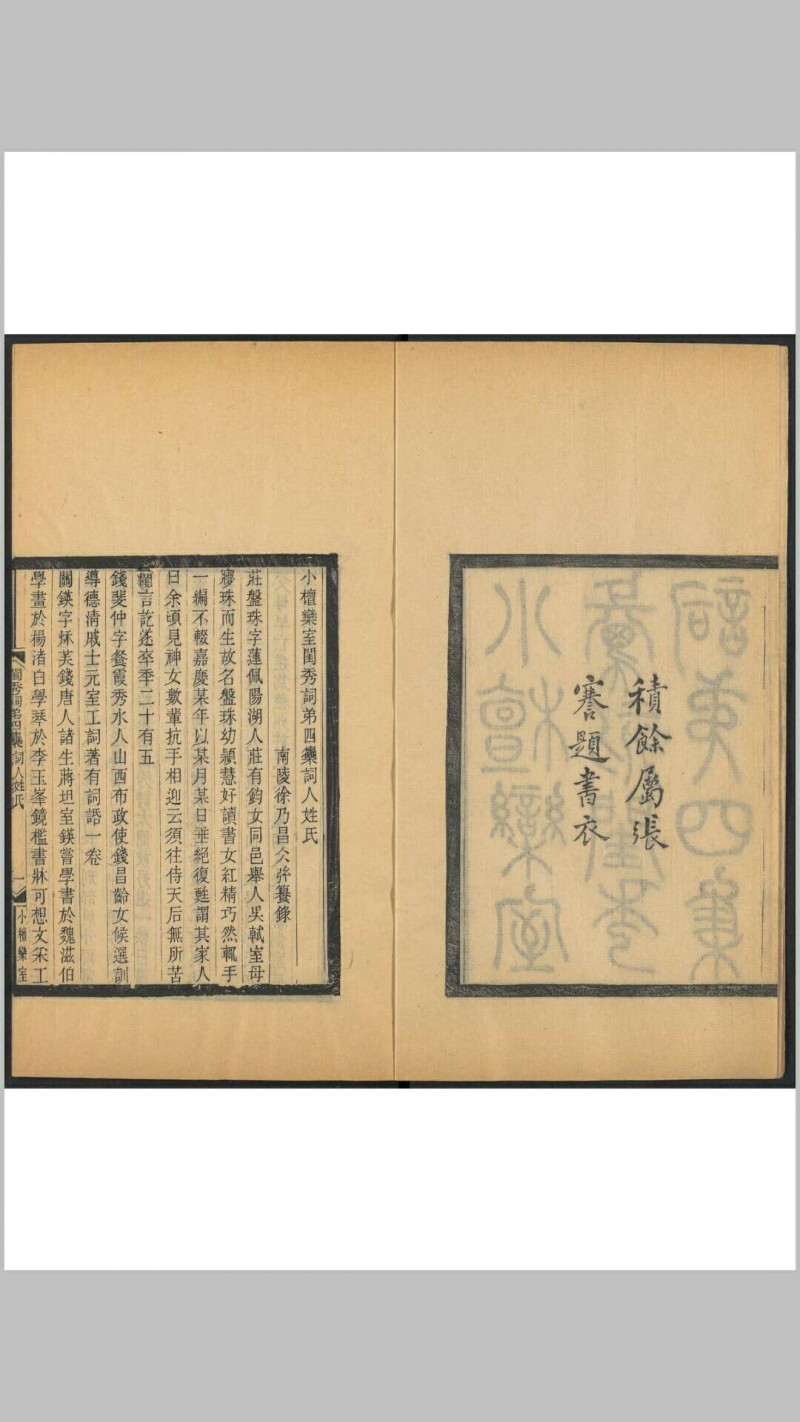 積餘屬張
謇題書衣
小檀欒室閨秀詞弟四集詞人姓氏
南陵徐乃昌仌㢡籑錄
莊盤珠字蓮佩陽湖人莊有鈞女同邑舉人吳軾室母
㝱珠而生故名盤珠幼穎慧好讀書女紅精巧然輒手
一編不輟嘉慶某年以某月某日垂絕復甦謂其家人
曰余頃見神女數輩抗手相迎云須往侍天后無所苦
也言訖遂卒季二十有五
錢斐仲字餐霞秀水人山西布政使錢昌齡女候選訓
導德清戚士元室工詞著有詞話一卷
關鍈字秌芙錢唐人諸生蔣坦室鍈嘗學書於魏滋伯
學畫於楊渚白學琴於李玉峯鏡檻書牀可想文采工
閨秀詞弟四集詞人姓氏
一
小檀欒室